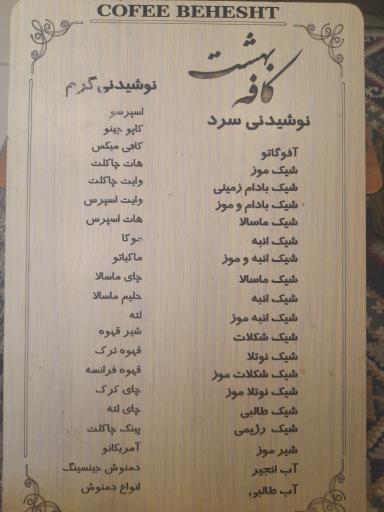 COFEE BEHESHT
کافه بهشت
نوشیدنی سرد
آفوگاتو
شیک موز
شیک بادام زمینی
شیک بادام و موز
شیک ماسالا
شیک انبه
شیک انبه و موز
شیک ماسالا
شیک انبه
شیک انبه موز
شیک شکلات
شیک نوتلا
شیک شکلات موز
شیک نوتلا موز
شیک طالبی
شیک رژیمی
شیر موز
آب انجیر
آب طالبی
نوشیدنی گرم
اسپرسو
کاپو چینو
کافی میکس
هات چاکلت
وایت چاکلت
وایت اسپرس
هات اسپرس
موکا
ماکیاتو
چای ماسالا
حلیم ماسالا
لته
شیر قهوه
قهوه ترک
قهوه فرانسه
چای کرک
چای لته
پینک چاکلت
آمریکانو
دمنوش جینسینگ
انواع دمنوش